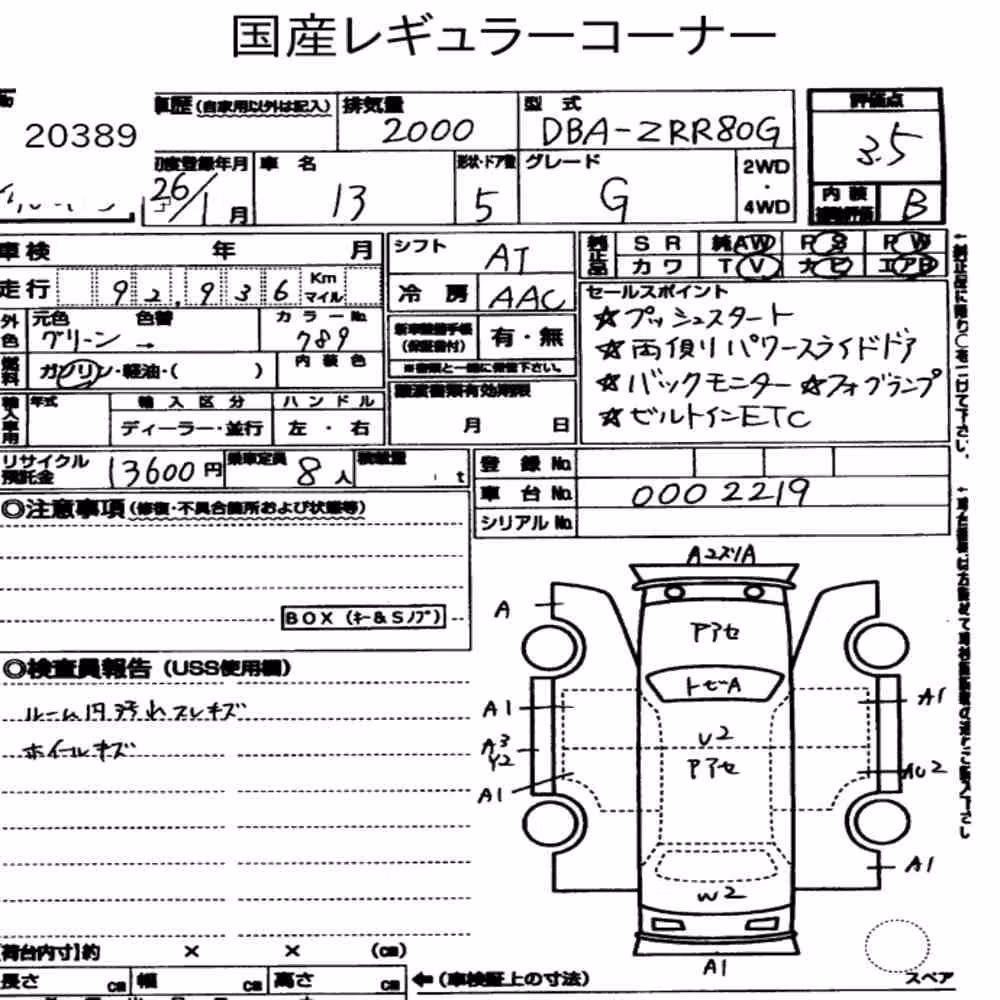 国産レギュラーコーナー
20389
車歴 (自家用以外は記入)
排気量
2000
型式
DBA-ZRR80G
評価点
3.5
初度登録年月
26/1月
車名
13
形状・ドア数
5
グレード
G
2WD
・
4WD
内装
B
車検 年 月
シフト
AT
純正品
SR 純AW PS PW
カワ TV ナビ エアB
走行 92,936 Km マイル
冷房
AAC
セールスポイント
☆プッシュスタート
☆両側リパワースライドドア
☆バックモニター ☆フォグランプ
☆ビルトインETC
外色
元色 色替
グリーン →
カラーNo.
789
新車整備手帳
(保証書付)
有・無
※書類と一緒に発信下さい。
燃料
ガソリン・軽油・( )
内装色
譲渡書類有効期限
月 日
輸入車用
年式
輸入区分
ディーラー・並行
ハンドル
左・右
リサイクル預託金
13600円
乗車定員
8人
積載量
t
登録No.
車台No.
0002219
シリアルNo.
◎注意事項 (修復・不具合箇所および状態等)
BOX (キー&Sノブ)
◎検査員報告 (USS使用欄)
ルーム内汚れスレキズ
ホイールキズ
A2スリA
A
アアセ
トビA
A1
A1
U2
A3
Y2
アアセ
AU2
A1
A1
W2
A1
スペア
[荷台内寸]約 × × (cm)
長さ cm 幅 cm 高さ cm
←(車検証上の寸法)